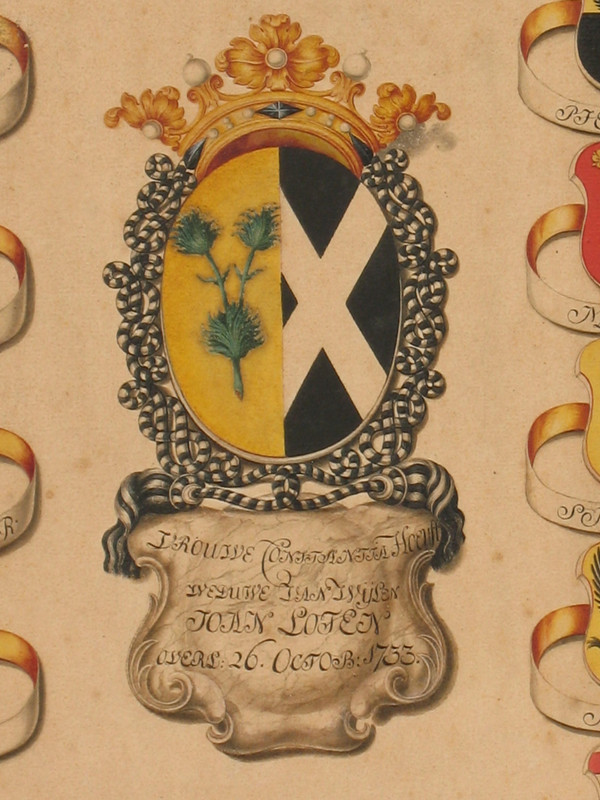 VROUWE CONSTANTIA Hoeufft
WEDUWE VAN WIJLEN
JOAN LOTEN
OVERL: 26. OCTOB: 1733.